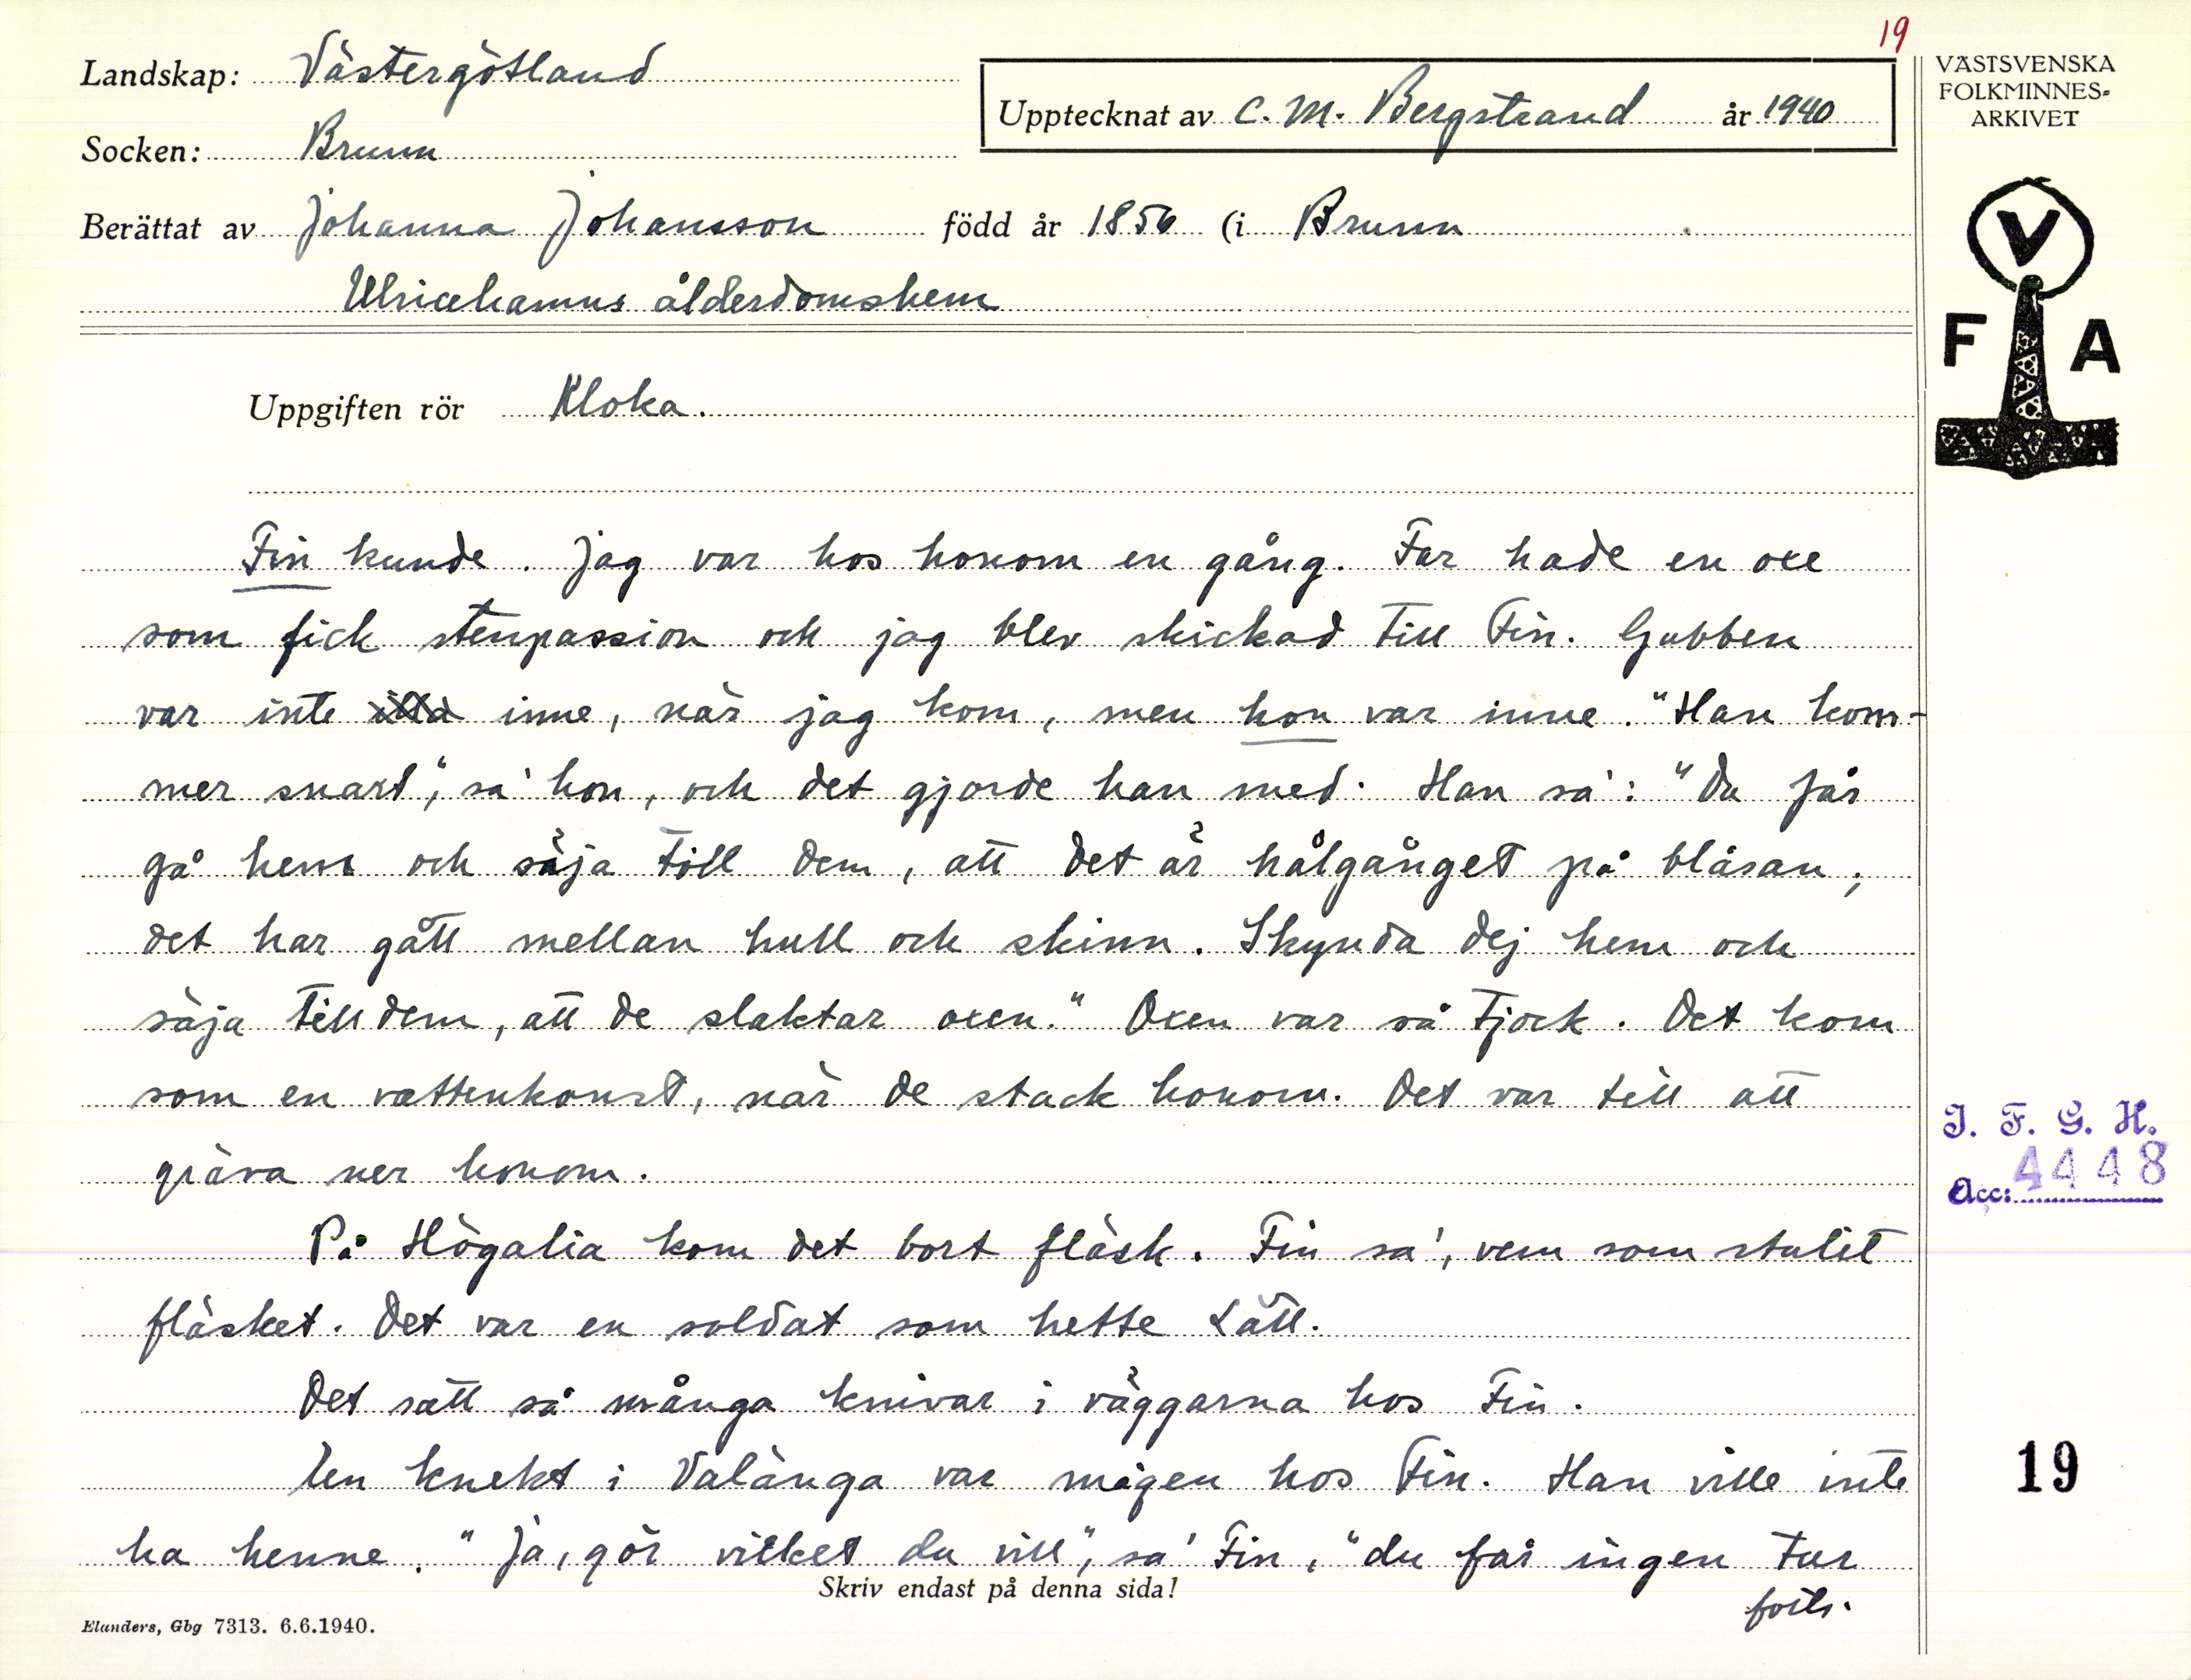 19
Landskap: Västergötland
Upptecknat av C. M. Bergstrand år 1940
VÄSTSVENSKA
FOLKMINNES-
ARKIVET
Socken: Brunn
Berättat av Johanna Johansson född år 1856 (i Brunn
Ulricehamns ålderdomshem
V
F A
Uppgiften rör Kloka.
Fin kunde. Jag var hos honom en gång. Far hade en oxe
som fick stenpassion och jag blev skickad till Fin. Gubben
var inte inne, när jag kom, men hon var inne. "Han kom-
mer snart", sa' hon, och det gjorde han med. Han sa': "Du får
gå hem och säja töll dem, att det är hålgånget på blåsan,
det har gått mellan hull och skinn. Skynda dej hem och
säja till dem, att de slaktar oxen." Oxen var så tjock. Det kom
som en vattenkonst, när de stack honom. Det var till att
gräva ner honom.
På Högalia kom det bort fläsk. Fin sa', vem som stulit
fläsket. Det var en soldat som hette Lätt.
Det satt så många knivar i väggarna hos Fin.
En knekt i Valånga var mågen hos Fin. Han ville inte
ha henne. "Ja, gör vilket du vill", sa' Fin, "du får ingen tur
forts.
J. F. G. H.
Acc: 4448
19
Skriv endast på denna sida!
Elanders, Gbg 7313. 6.6.1940.